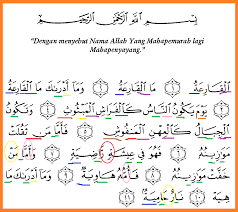 بِسْمِ اللَّهِ الرَّحْمَٰنِ الرَّحِيمِ
"Dengan menyebut Nama Allah Yang Mahapemurah lagi
Mahapenyayang."
الْقَارِعَةُ ۝١ مَا الْقَارِعَةُ ۝٢ وَمَا أَدْرَىٰكَ مَا الْقَارِعَةُ
۝٣ يَوْمَ يَكُونُ النَّاسُ كَالْفَرَاشِ الْمَبْثُوثِ ۝٤ وَتَكُونُ
الْجِبَالُ كَالْعِهْنِ الْمَنْفُوشِ ۝٥ فَأَمَّا مَنْ ثَقُلَتْ
مَوَٰزِينُهُ ۝٦ فَهُوَ فِي عِيشَةٍ رَاضِيَةٍ ۝٧ وَأَمَّا مَنْ
خَفَّتْ مَوَٰزِينُهُ ۝٨ فَأُمُّهُ هَاوِيَةٌ ۝٩ وَمَا أَدْرَىٰكَ مَا
هِيَهْ ۝١٠ نَارٌ حَامِيَةٌ ۝١١